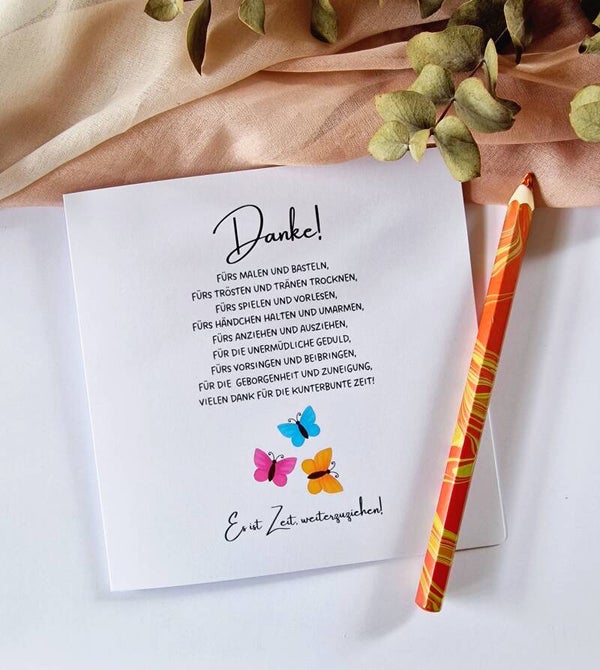 Danke!
FÜRS MALEN UND BASTELN,
FÜRS TRÖSTEN UND TRÄNEN TROCKNEN,
FÜRS SPIELEN UND VORLESEN,
FÜRS HÄNDCHEN HALTEN UND UMARMEN,
FÜRS ANZIEHEN UND AUSZIEHEN,
FÜR DIE UNERMÜDLICHE GEDULD,
FÜRS VORSINGEN UND BEIBRINGEN,
FÜR DIE GEBORGENHEIT UND ZUNEIGUNG,
VIELEN DANK FÜR DIE KUNTERBUNTE ZEIT!
Es ist Zeit, weiterzuziehen!